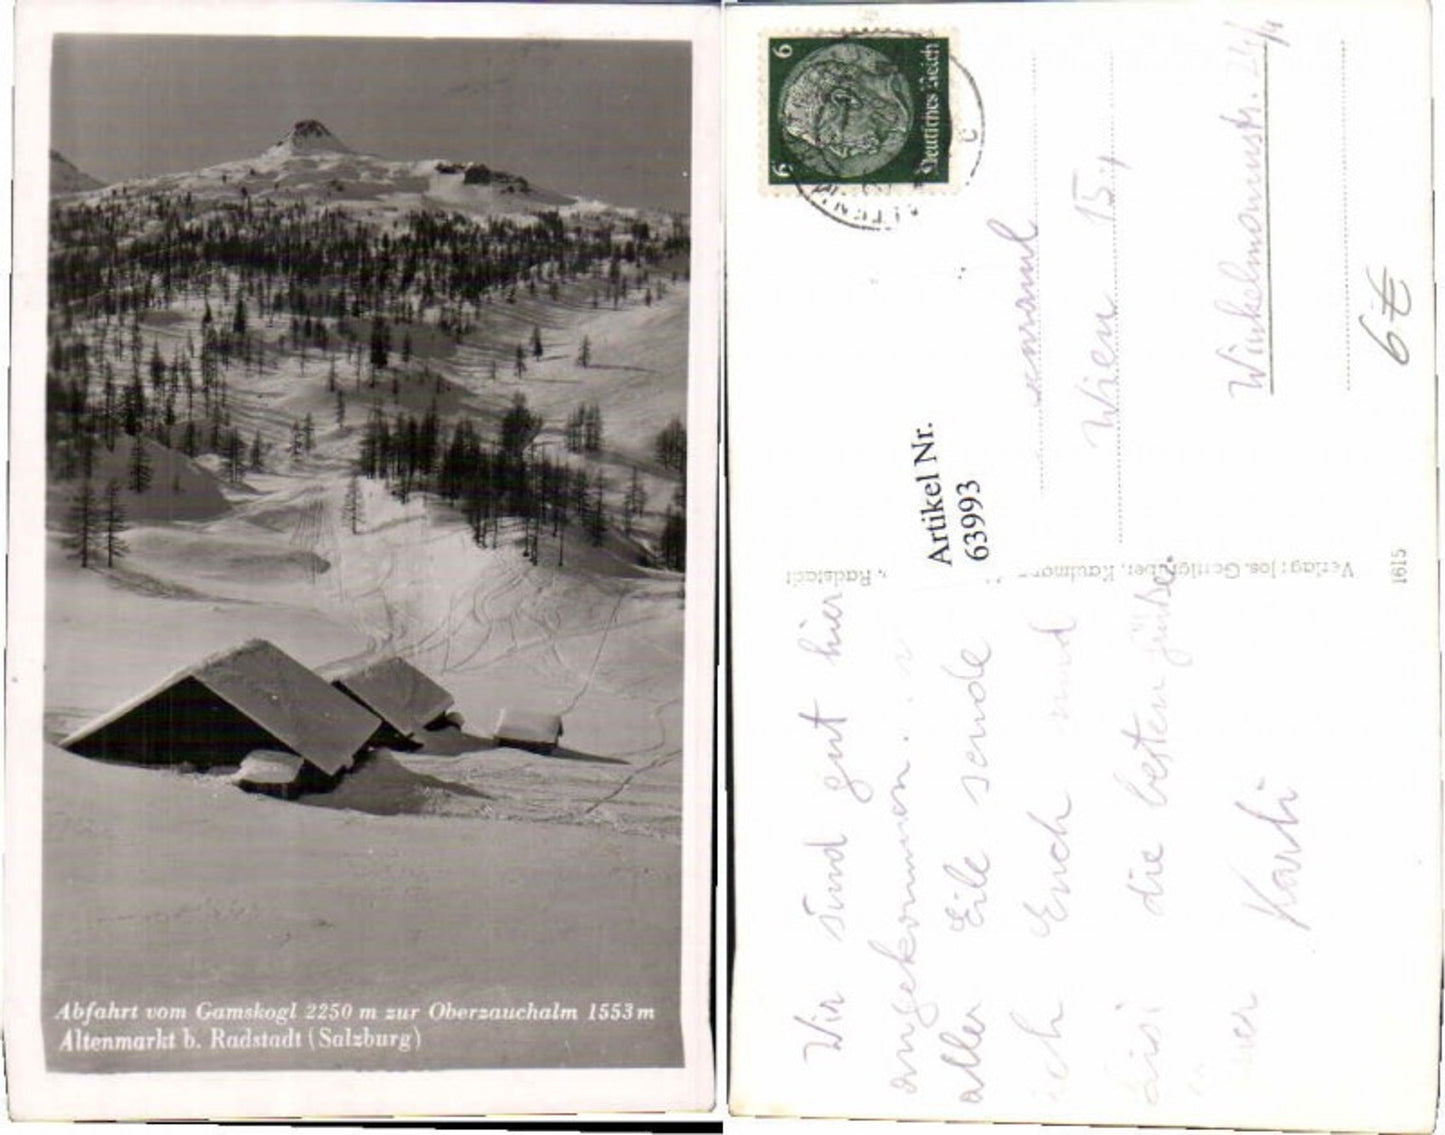 Abfahrt vom Gamskogl 2250 m zur Oberzauchalm 1553 m
Altenmarkt b. Radstadt (Salzburg)
6 Deutsches Reich 6
Wien 15.,
Winkelmannstr. 24/4
6€
Artikel Nr.
63993
Radstadt
Verlag: Jos.
1615
Wir sind gut hier
angekommen. In
aller Eile sende
ich Euch und
die besten Grüße.
Euer
Karli